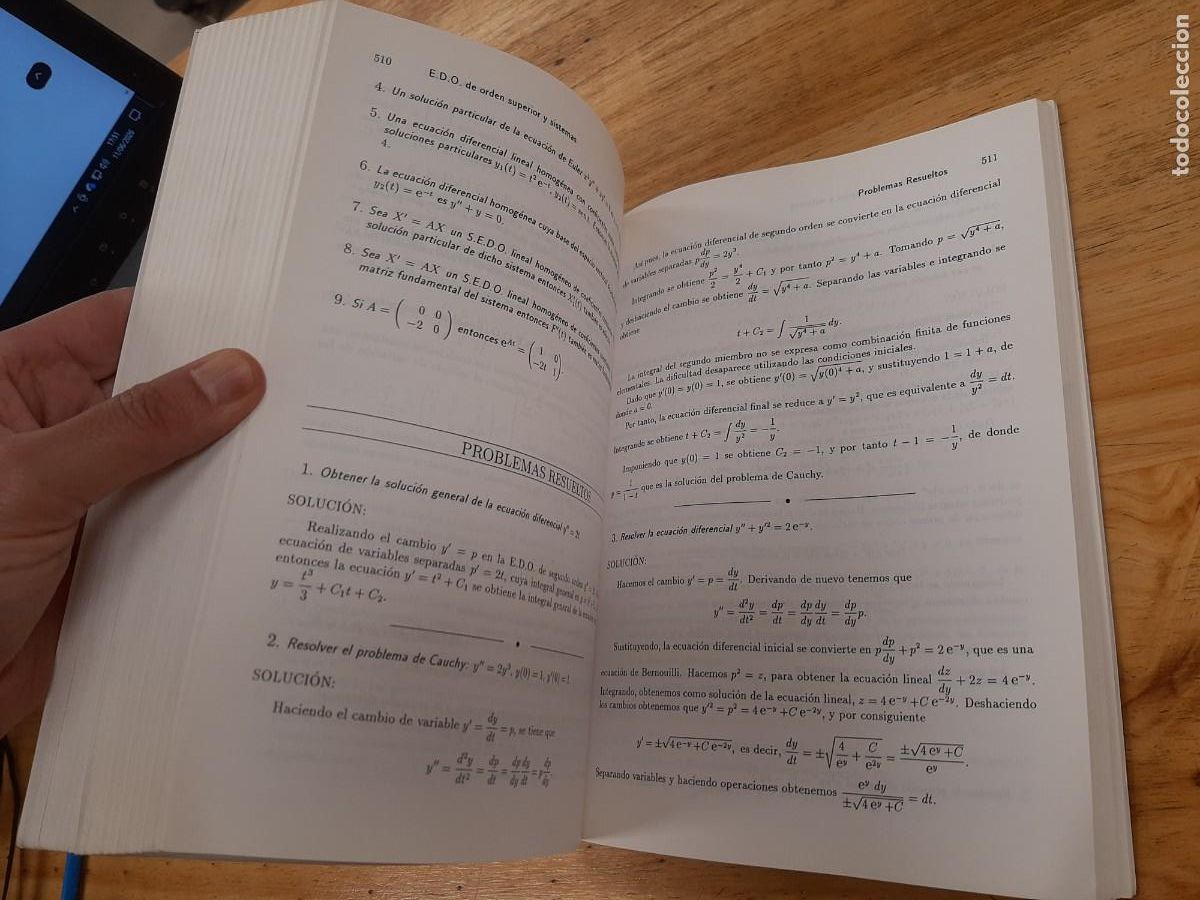 510
E.D.O. de orden superior y sistemas
4. Un solución particular de la ecuación de Euler
5. Una ecuación diferencial lineal homogénea con
soluciones particulares y₁(t) = t² e⁻ᵗ, y₂(t) =
4.
6. La ecuación diferencial homogénea cuya base del espacio
y₂(t) = e⁻ᵗ es y'' + y = 0.
7. Sea X' = AX un S.E.D.O. lineal homogéneo de
solución particular de dicho sistema entonces X'₁(t) también
8. Sea X' = AX un S.E.D.O. lineal homogéneo de
matriz fundamental del sistema entonces F'(t) también es
9. Si A = ( 0 0 ; −2 0 ) entonces e^{At} = ( 1 0 ; −2t 1 ).
PROBLEMAS RESUELTOS
1. Obtener la solución general de la ecuación diferencial y'' = 2t
SOLUCIÓN:
Realizando el cambio y' = p en la E.D.O. de segundo orden
ecuación de variables separadas p' = 2t, cuya integral general es
entonces la ecuación y' = t² + C₁ se obtiene la integral general de la
y = t³/3 + C₁t + C₂.
2. Resolver el problema de Cauchy: y'' = 2y³, y(0) = 1, y'(0) = 1.
SOLUCIÓN:
Haciendo el cambio de variable y' = dy/dt = p, se tiene que
y'' = d²y/dt² = dp/dt = dp/dy dy/dt = p dp/dy.
511
Problemas Resueltos
Así pues, la ecuación diferencial de segundo orden se convierte en la ecuación diferencial
de variables separadas p dp/dy = 2y³.
Integrando se obtiene p²/2 = y⁴/2 + C₁ y por tanto p² = y⁴ + a. Tomando p = √(y⁴ + a),
y deshaciendo el cambio se obtiene dy/dt = √(y⁴ + a). Separando las variables e integrando se
obtiene
t + C₂ = ∫ 1/√(y⁴ + a) dy.
La integral del segundo miembro no se expresa como combinación finita de funciones
elementales. La dificultad desaparece utilizando las condiciones iniciales.
Dado que y'(0) = y(0) = 1, se obtiene y'(0) = √(y(0)⁴ + a), y sustituyendo 1 = 1 + a, de
donde a = 0.
Por tanto, la ecuación diferencial final se reduce a y' = y², que es equivalente a dy/y² = dt.
Integrando se obtiene t + C₂ = ∫ dy/y² = −1/y.
Imponiendo que y(0) = 1 se obtiene C₂ = −1, y por tanto t − 1 = −1/y, de donde
y = 1/(1−t) que es la solución del problema de Cauchy.
3. Resolver la ecuación diferencial y'' + y'² = 2 e⁻ʸ.
SOLUCIÓN:
Hacemos el cambio y' = p = dy/dt. Derivando de nuevo tenemos que
y'' = d²y/dt² = dp/dt = dp/dy dy/dt = dp/dy p.
Sustituyendo, la ecuación diferencial inicial se convierte en p dp/dy + p² = 2 e⁻ʸ, que es una
ecuación de Bernouilli. Hacemos p² = z, para obtener la ecuación lineal dz/dy + 2z = 4 e⁻ʸ.
Integrando, obtenemos como solución de la ecuación lineal, z = 4 e⁻ʸ + C e⁻²ʸ. Deshaciendo
los cambios obtenemos que y'² = p² = 4 e⁻ʸ + C e⁻²ʸ, y por consiguiente
y' = ±√(4 e⁻ʸ + C e⁻²ʸ), es decir, dy/dt = ±√(4/eʸ + C/e²ʸ) = ±√(4 eʸ + C)/eʸ.
Separando variables y haciendo operaciones obtenemos eʸ dy/±√(4 eʸ + C) = dt.
17:11
11/06/2025
todocoleccion